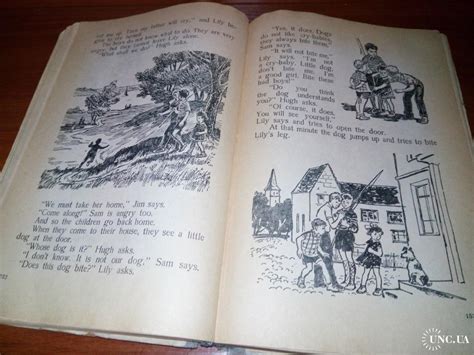 out of the fog. Then my father will say," and Lily be-
The boys do not know what to do. They are very
angry, but they cannot leave Lily alone.
"What shall we do?" Hugh asks.
"We must take her home," Jim says.
"Come along!" Sam is angry too.
And so the children go back home.
When they come to their house, they see a little
dog at the door.
"Whose dog is it?" Hugh asks.
"I don't know. It is not our dog," Sam says.
"Does this dog bite?" Lily asks.
"Yes, it does. Dogs
do not like cry-babies,
they always bite them,"
Sam says.
"It will not bite me,"
Lily says. "I'm not
a cry-baby. Little dog,
don't bite me. I'm
a good girl. Bite these
bad boys!"
"Do you think
the dog understands
you?" Hugh asks.
"Of course, it does.
You will see yourself,"
Lily says and tries to open the door.
At that minute the dog jumps up and tries to bite
Lily's leg.
UNC.UA